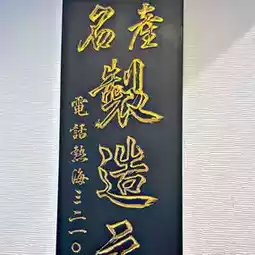 名産
製造
電話熱海三二一〇